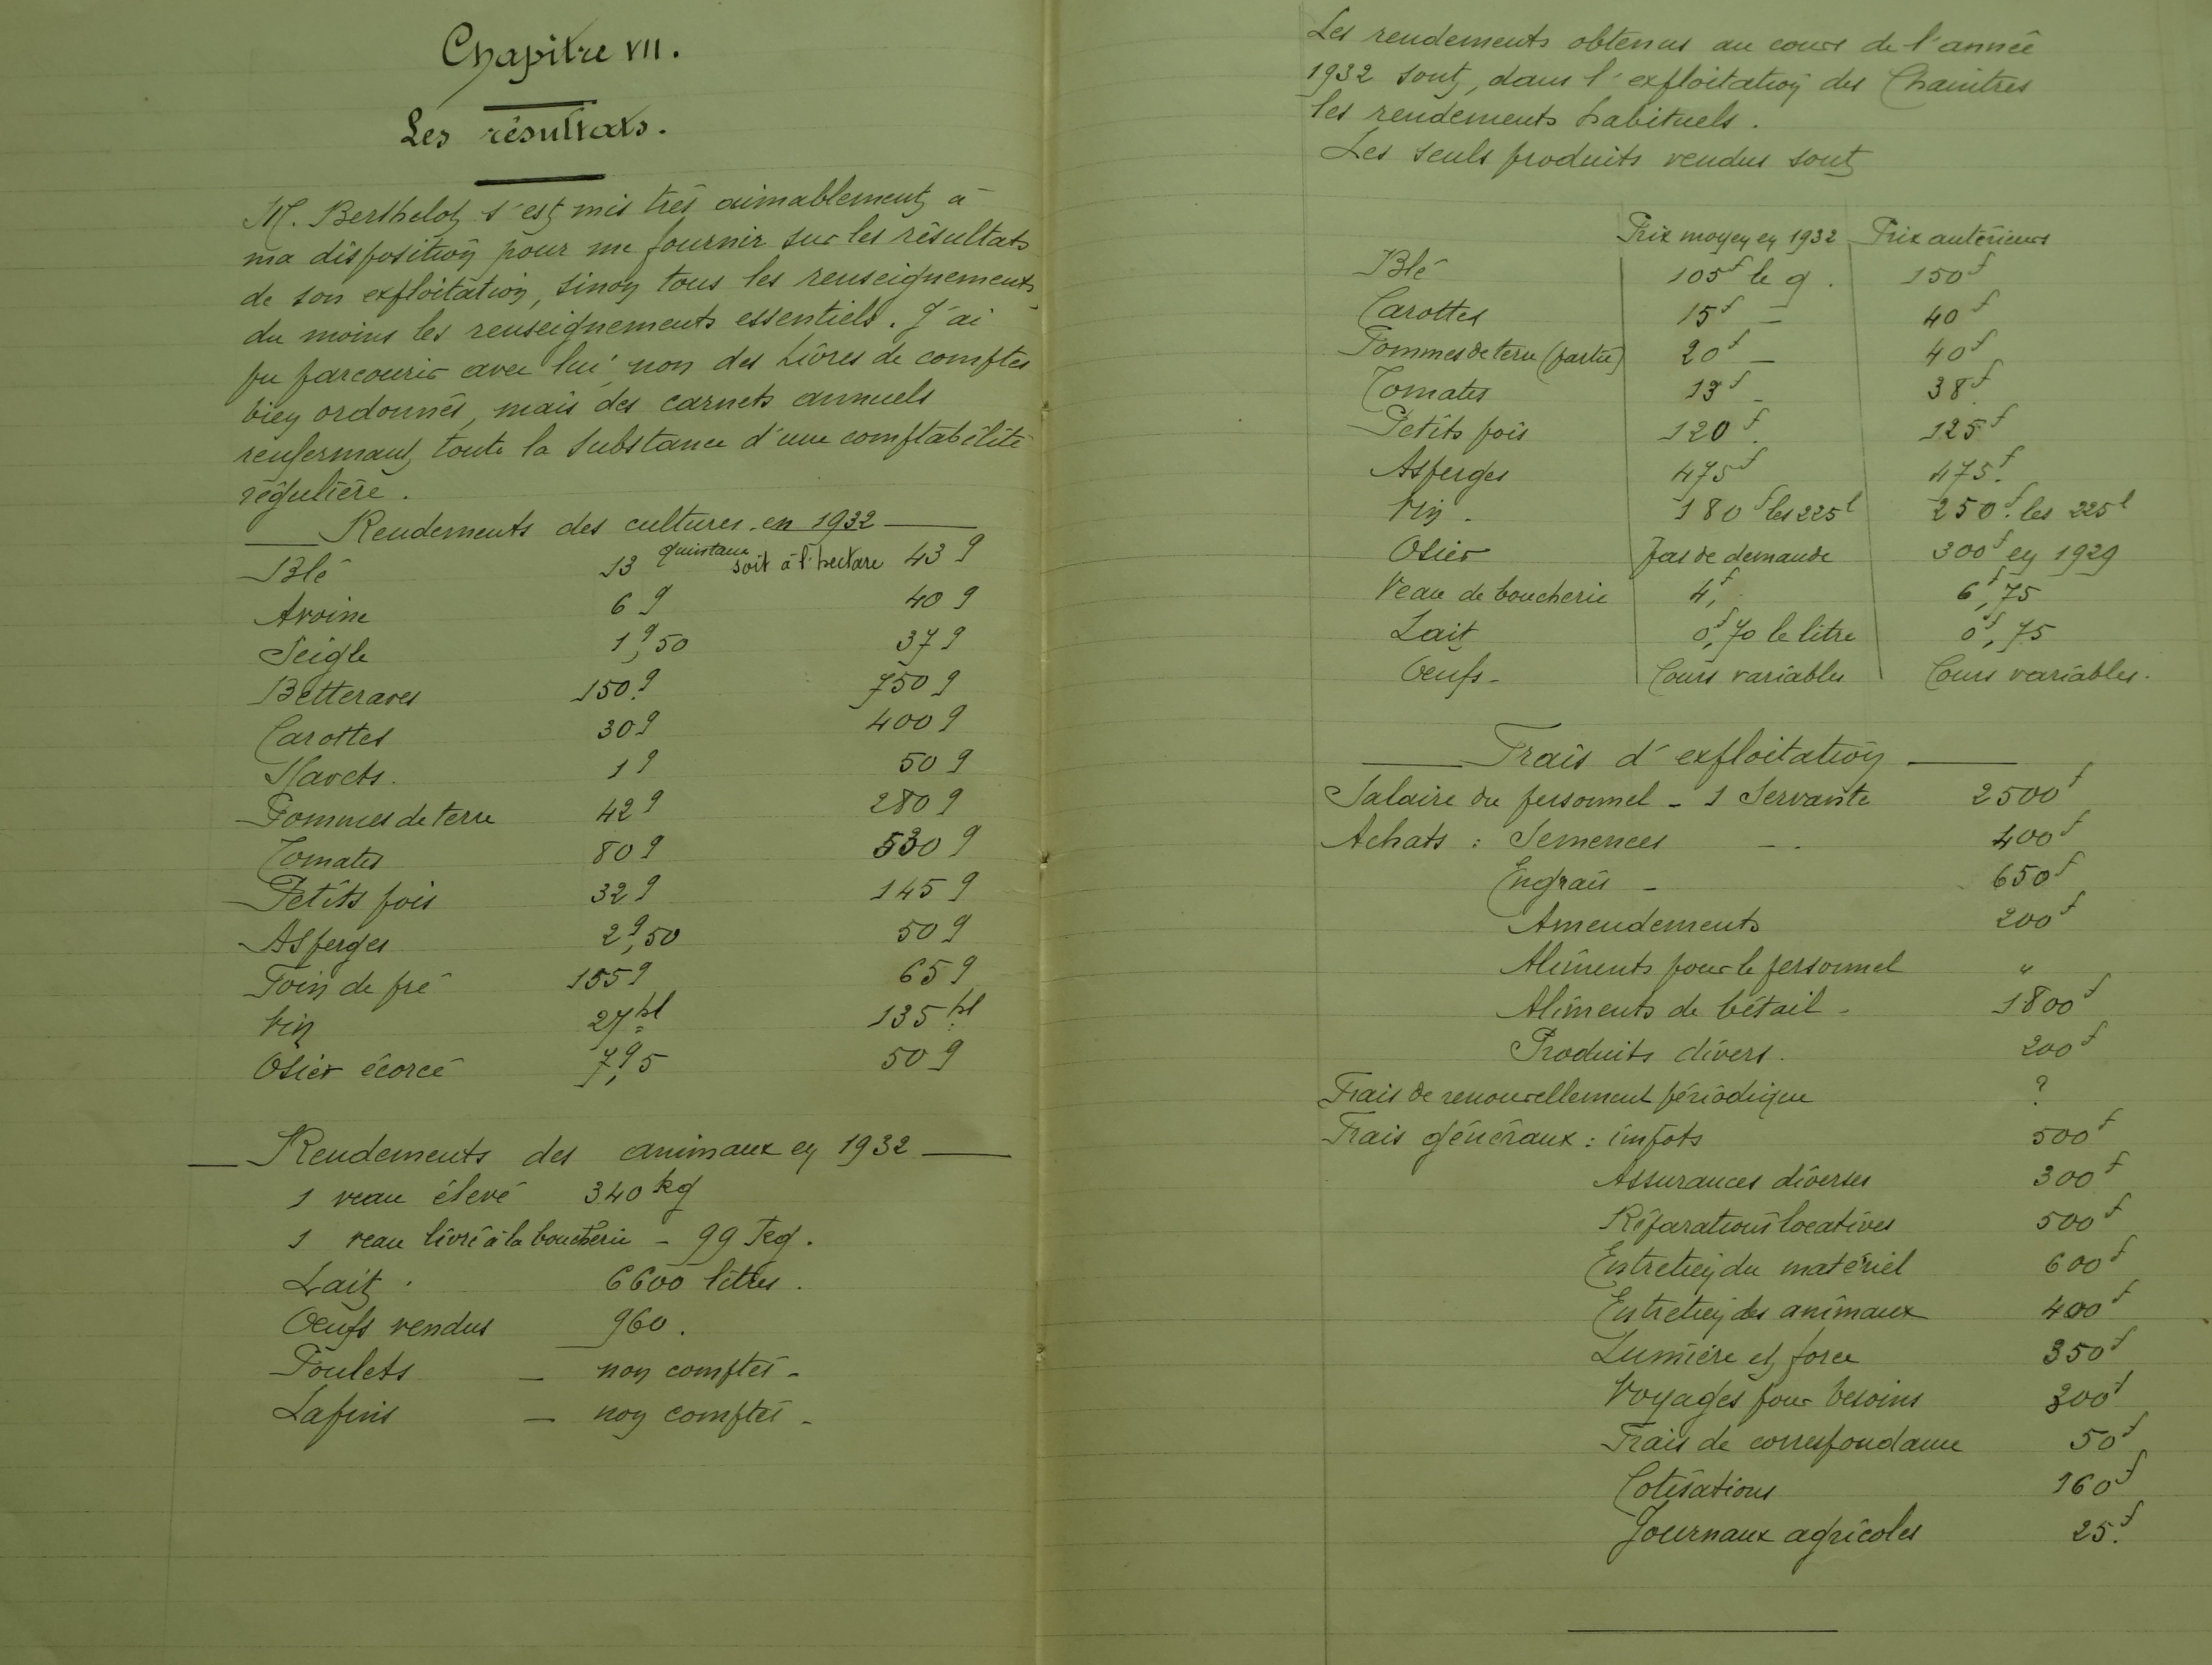 Chapitre VII.
Les résultats.
M. Berthelot s'est mis très aimablement à
ma disposition pour me fournir sur les résultats
de son exploitation, sinon tous les renseignements,
du moins les renseignements essentiels. J'ai
pu parcourir avec lui non des livres de comptes
bien ordonnés, mais des carnets annuels
renfermant toute la substance d'une comptabilité
régulière.
Rendements des cultures en 1932
Blé 13 quintaux soit à l'hectare 43 q
Avoine 6 q 40 q
Seigle 1 q,50 37 q
Betteraves 150 q 750 q
Carottes 30 q 400 q
Navets. 1 q 50 q
Pommes de terre 42 q 280 q
Tomates 80 q 530 q
Petits pois 32 q 145 q
Asperges 2 q,50 50 q
Foin de pré 155 q 65 q
Vin 27 hl 135 hl
Osier écorcé 7 q,5 50 q
Rendements des animaux en 1932
1 veau élevé 340 kg
1 veau livré à la boucherie - 99 kg.
Lait. 6600 litres.
Oeufs vendus 960.
Poulets — non comptés -
Lapins — non comptés -
Les rendements obtenus au cours de l'année
1932 sont, dans l'exploitation des Chaintres
les rendements habituels.
Les seuls produits vendus sont
Prix moyen en 1932 Prix antérieurs
Blé 105 f le q. 150 f
Carottes 15 f — 40 f
Pommes de terre (partie) 20 f — 40 f
Tomates 13 f - 38 f.
Petits pois 120 f. 125 f
Asperges 475 f 475 f.
Vin. 180 f les 225 l 250 f. les 225 l
Osier pas de demande 300 f en 1929
Veau de boucherie 4 f, 6 f,75
Lait 0 f,70 le litre 0 f,75
Oeufs - Cours variables Cours variables.
Frais d'exploitation
Salaire du personnel - 1 Servante 2500 f
Achats : Semences - . 400 f
Engrais - 650 f
Amendements 200 f
Aliments pour le personnel "
Aliments de bétail - 1800 f
Produits divers. 200 f
Frais de renouvellement périodique ?
Frais généraux : impôts 500 f
Assurances diverses 300 f
Réparations locatives 500 f
Entretien du matériel 600 f
Entretien des animaux 400 f
Lumière et force 350 f
Voyages pour besoins 300 f
Frais de correspondance 50 f
Cotisations 160 f
Journaux agricoles 25 f.